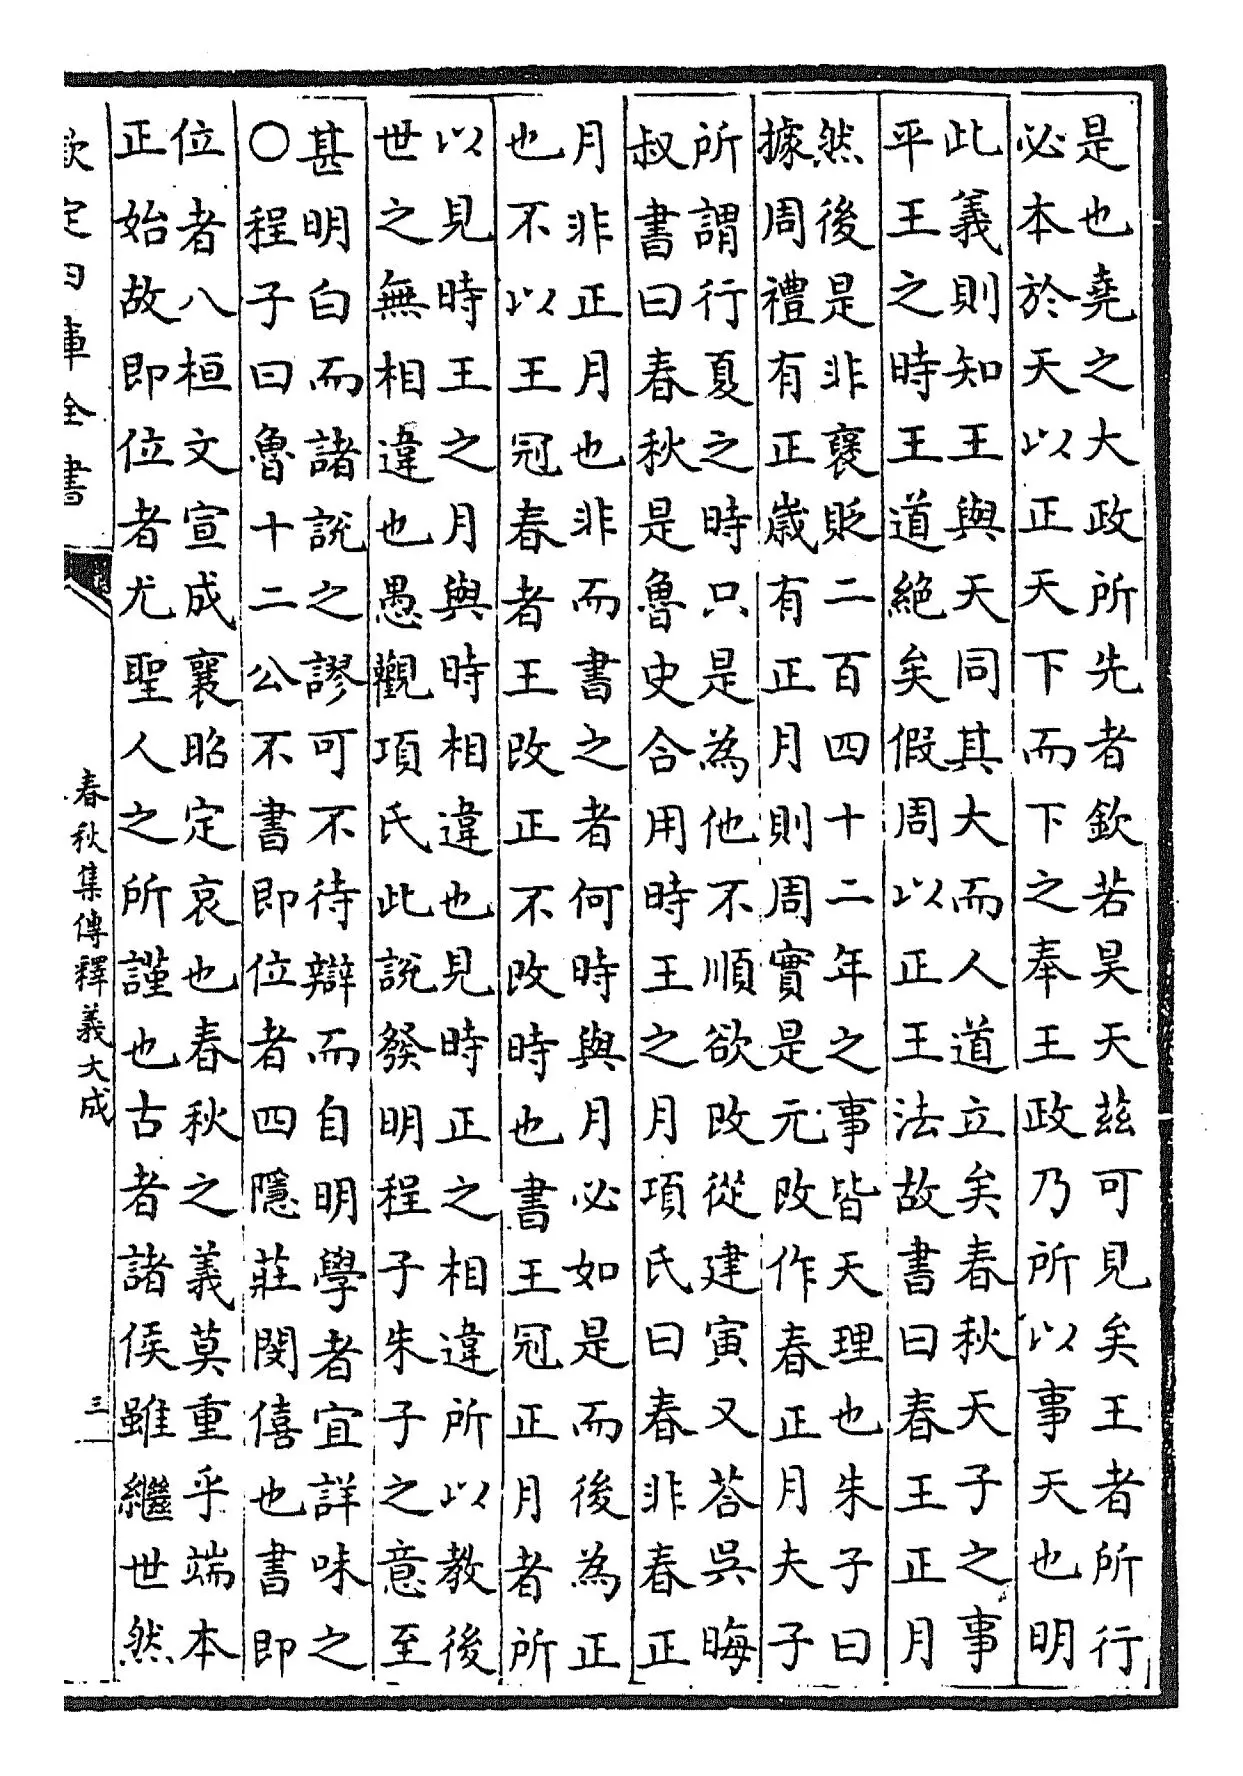 是也堯之大政所先者欽若昊天茲可見矣王者所行
必本於天以正天下而下之奉王政乃所以事天也明
此義則知王與天同其大而人道立矣春秋天子之事
平王之時王道絶矣假周以正王法故書曰春王正月
然後是非襃貶二百四十二年之事皆天理也朱子曰
據周禮有正歳有正月則周實是元改作春正月夫子
所謂行夏之時只是為他不順欲改從建寅又荅吳晦
叔書曰春秋是魯史合用時王之月項氏曰春非春正
月非正月也非而書之者何時與月必如是而後為正
也不以王冠春者王改正不改時也書王冠正月者所
以見時王之月與時相違也見時正之相違所以教後
世之無相違也愚觀項氏此說發明程子朱子之意至
甚明白而諸說之謬可不待辯而自明學者宜詳味之
〇程子曰魯十二公不書即位者四隱莊閔僖也書即
位者八桓文宣成襄昭定哀也春秋之義莫重乎端本
正始故即位者尤聖人之所謹也古者諸侯雖繼世然
欽定四庫全書
春秋集傳釋義大成
三